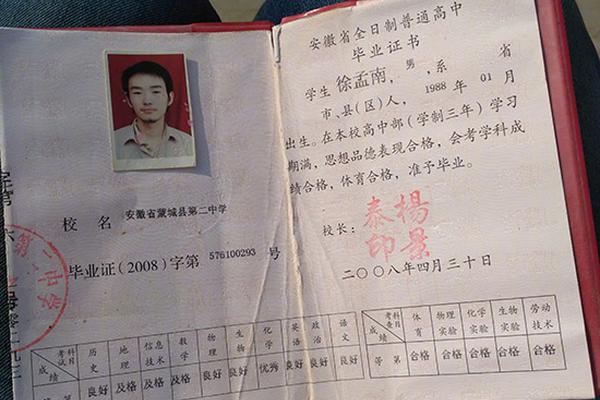 校名 安徽省蒙城县第二中学
毕业证(2008)字第 576100293 号
考试科目 历史 地理 信息技术 数学 物理 生物 化学 英语 政治 语文
成绩 良好 及格 及格 及格 良好 良好 优秀 良好 良好 良好
安徽省全日制普通高中
毕业证书
学生 徐孟南,男,系 省
市、县(区)人, 1988 年 01 月
出生。在本校高中部(学制三年)学习
期满,思想品德表现合格,会考学科成
绩合格,体育合格,准予毕业。
校长: 杨景泰印
二〇〇八年四月三十日
考查科目 体育 物理实验 化学实验 生物实验 劳动技术
成绩 等第 合格 合格 合格 合格 合格